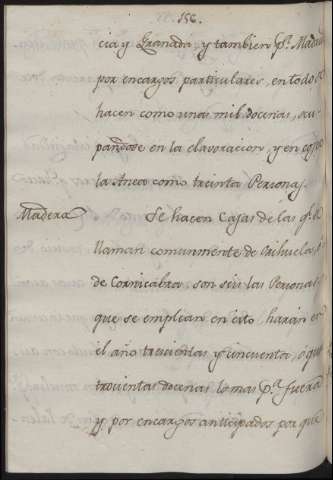 156.
cia y Granada y tambien pª. Madrid
por encargos particulares, en todo se
hacen como unas mil docenas, ocu
pandose en la elavoracion, y en coger
la Anea como treinta Personas
Madera Se hacen Cajas de las qe. se
llaman comunmente de Orihuela,
de Cornicabra, son seis las Personas
que se emplean en esto, harán en
el año trecientas y cincuenta, ó qua
trocientas docenas lo mas pª. fuera
y por encargos anticipados por que